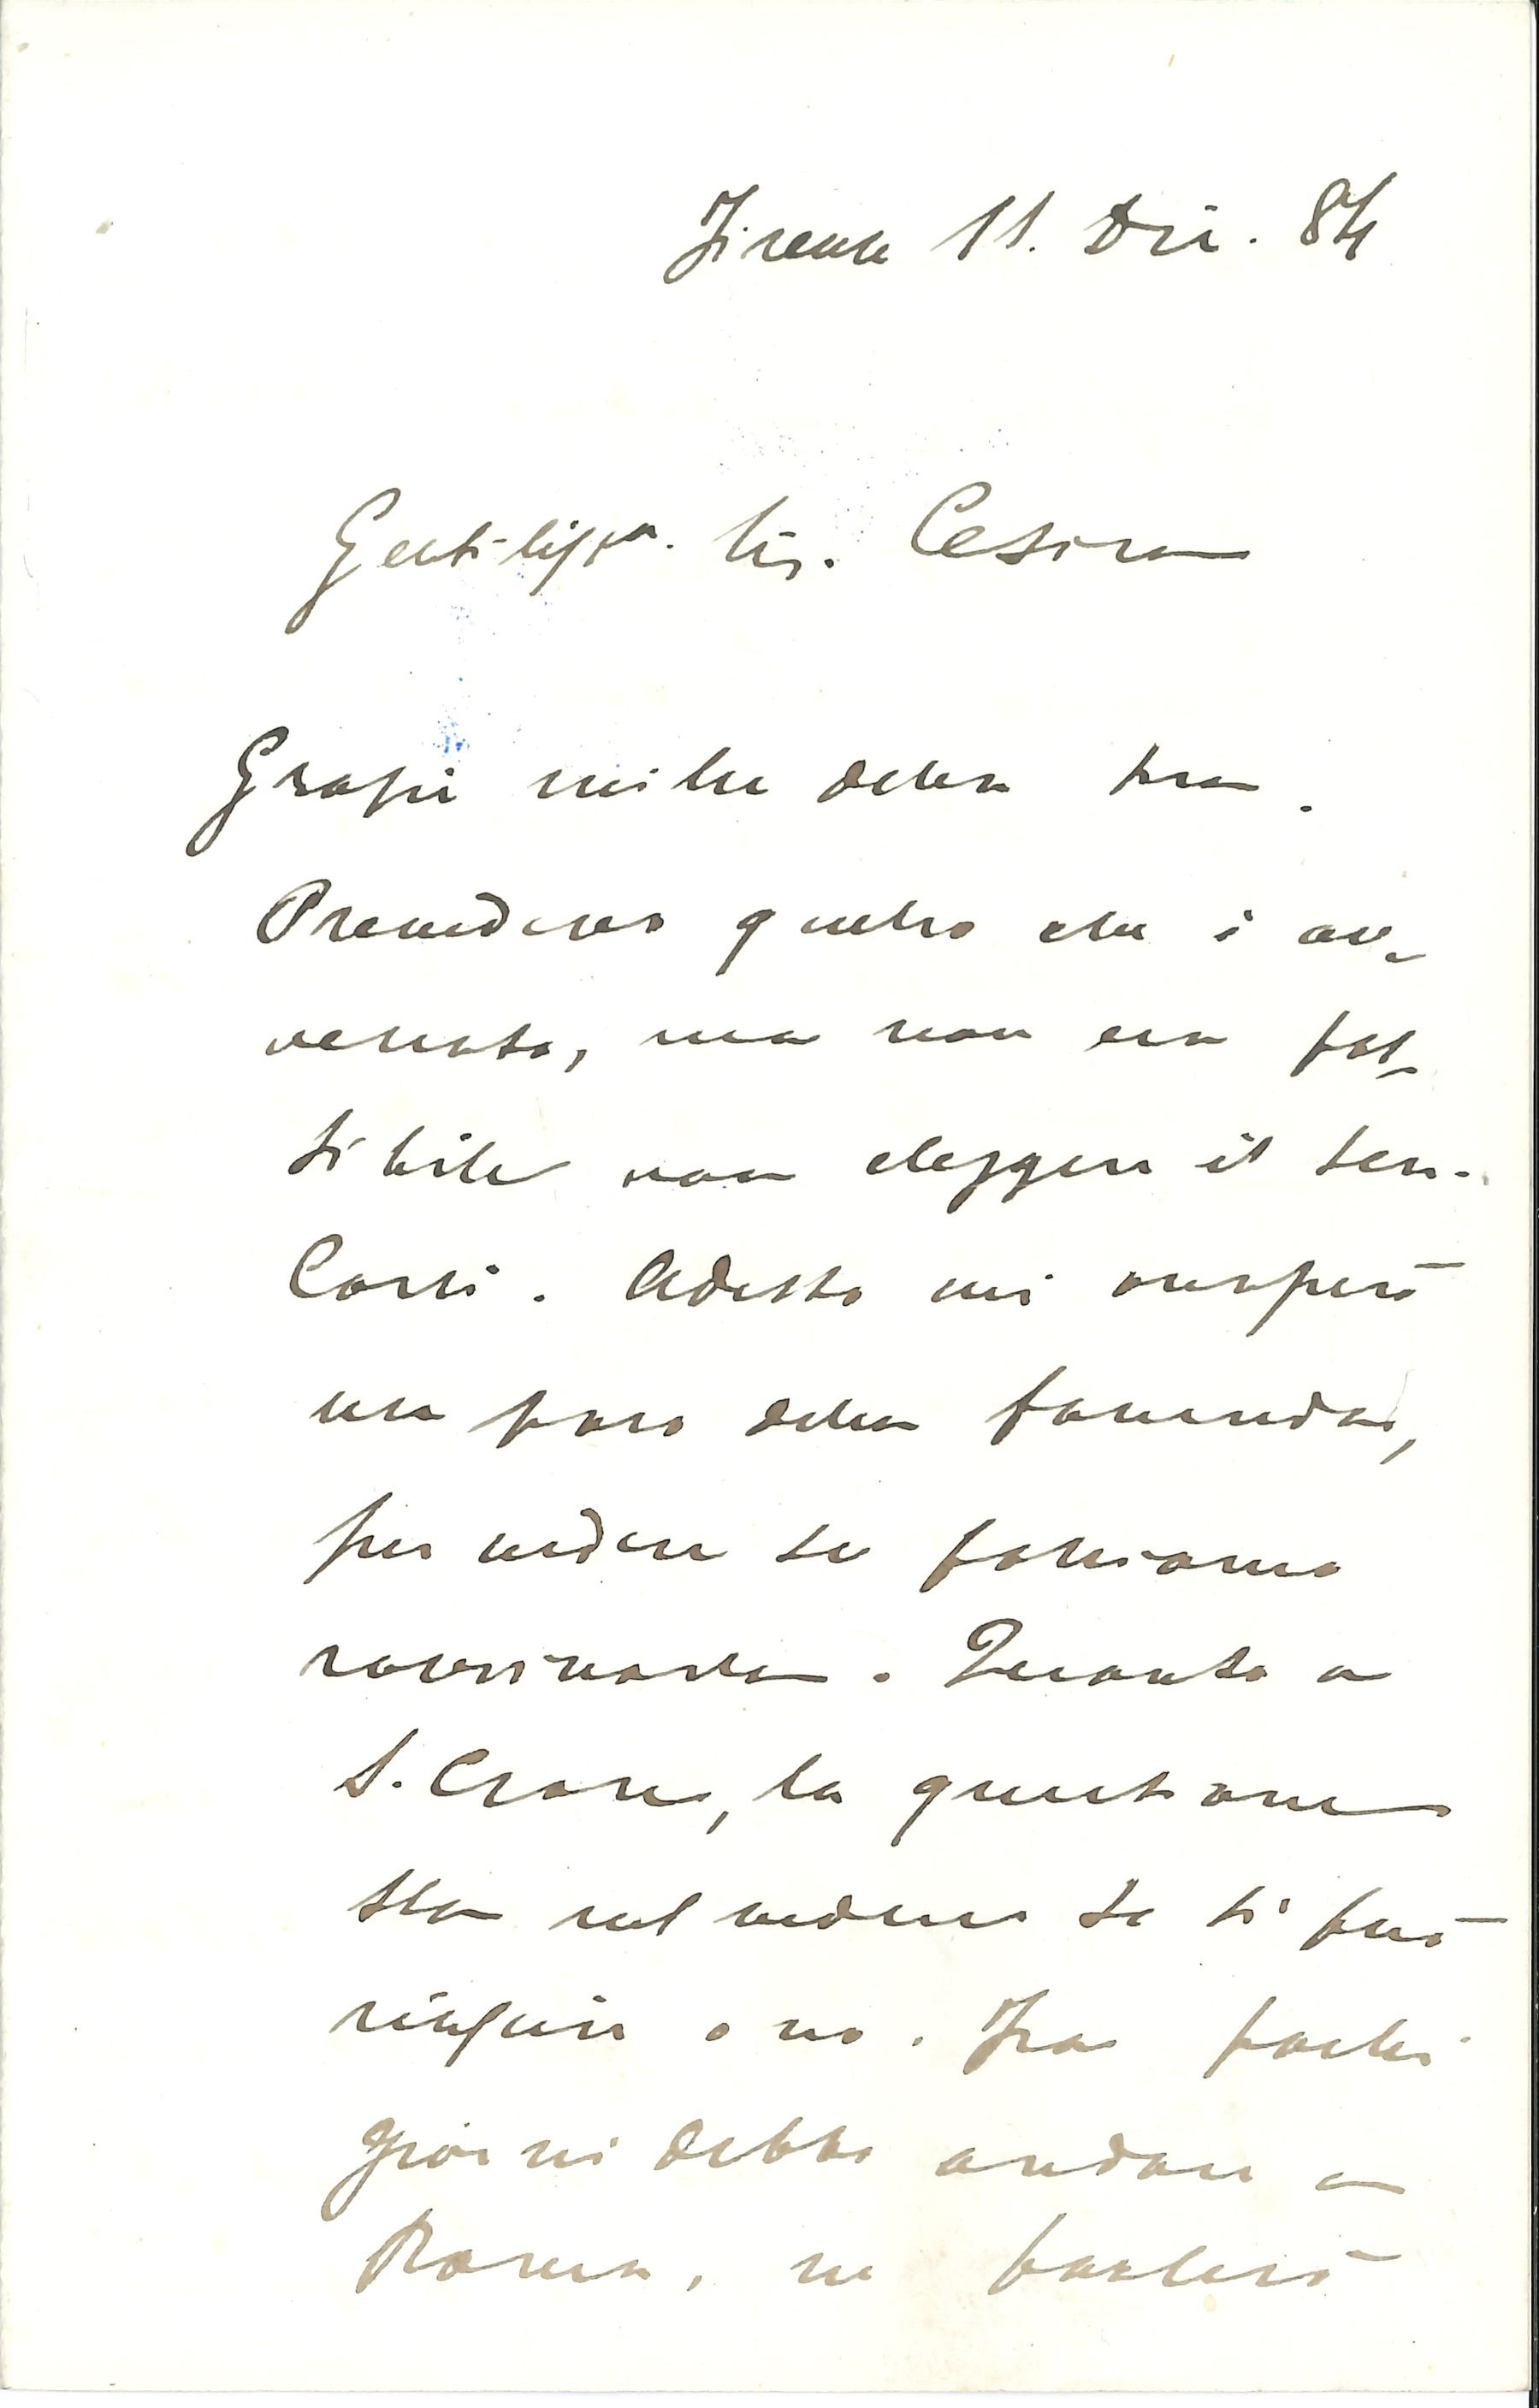 Firenze 11. Dic. 84
Gentilissa. Sig. Cesira
Grazie mille della sua.
Prevedevo quello che è av-
venuto, ma non era pos-
sibile non eleggere il Sen.
Corsi. Adesso mi occuperò
un poco della faccenda,
per vedere se possiamo
ravvivarla. Quanto a
S. Croce, la questione
sta nel vedere se si può
riuscire o no. Fra pochi
giorni debbo andare a
Roma, ne parlerò